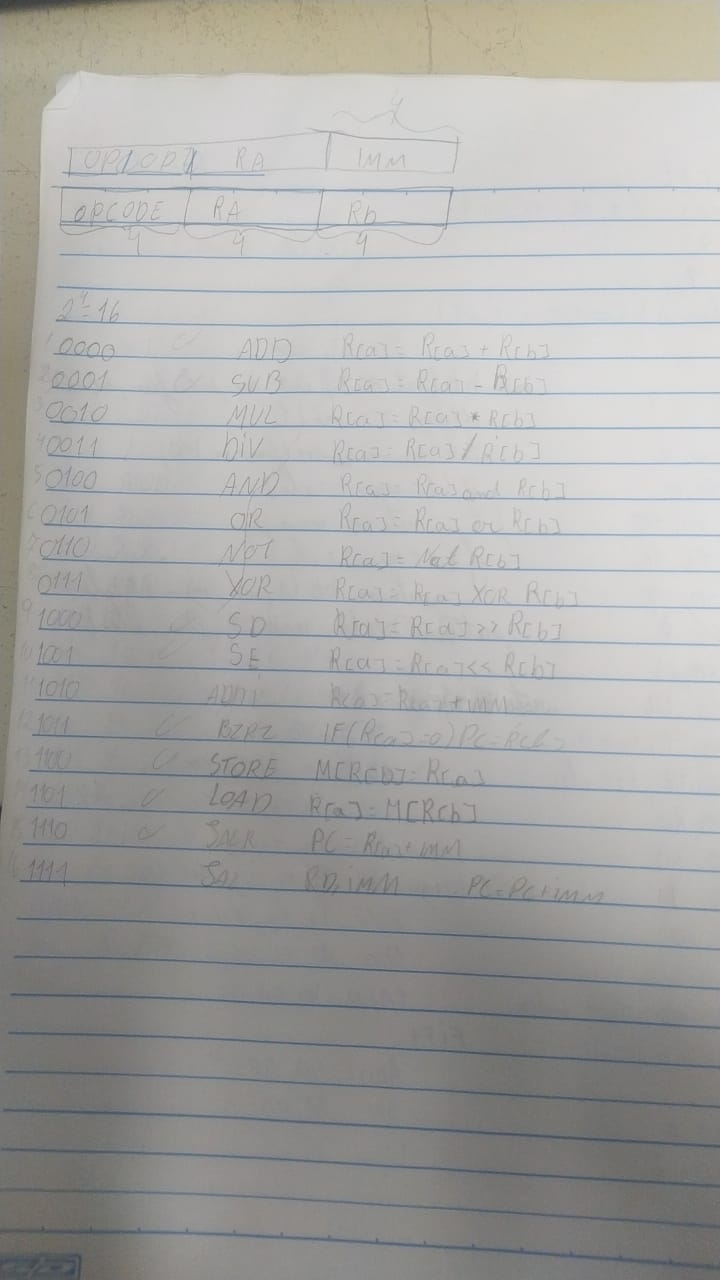 4
OPCODE RA IMM
OPCODE RA Rb
4 4 4
2^4=16
1 0000 ADD R[a]= R[a] + R[b]
2 0001 SUB R[a]= R[a] - R[b]
3 0010 MUL R[a]= R[a] * R[b]
4 0011 DiV R[a]= R[a] / R[b]
5 0100 AND R[a]= R[a] and R[b]
6 0101 OR R[a]= R[a] or R[b]
7 0110 NOT R[a]= Not R[b]
8 0111 XOR R[a]= R[a] XOR R[b]
9 1000 SD R[a]= R[a] >> R[b]
10 1001 SE R[a]= R[a] << R[b]
11 1010 ADDI R[a]= R[a] + IMM
12 1011 BZRZ IF(R[a]=0) PC=R[b]
13 1100 STORE M[R[b]]= R[a]
14 1101 LOAD R[a]= M[R[b]]
15 1110 JALR PC= R[a]+IMM
16 1111 JAL RD, iMM PC=PC+iMM